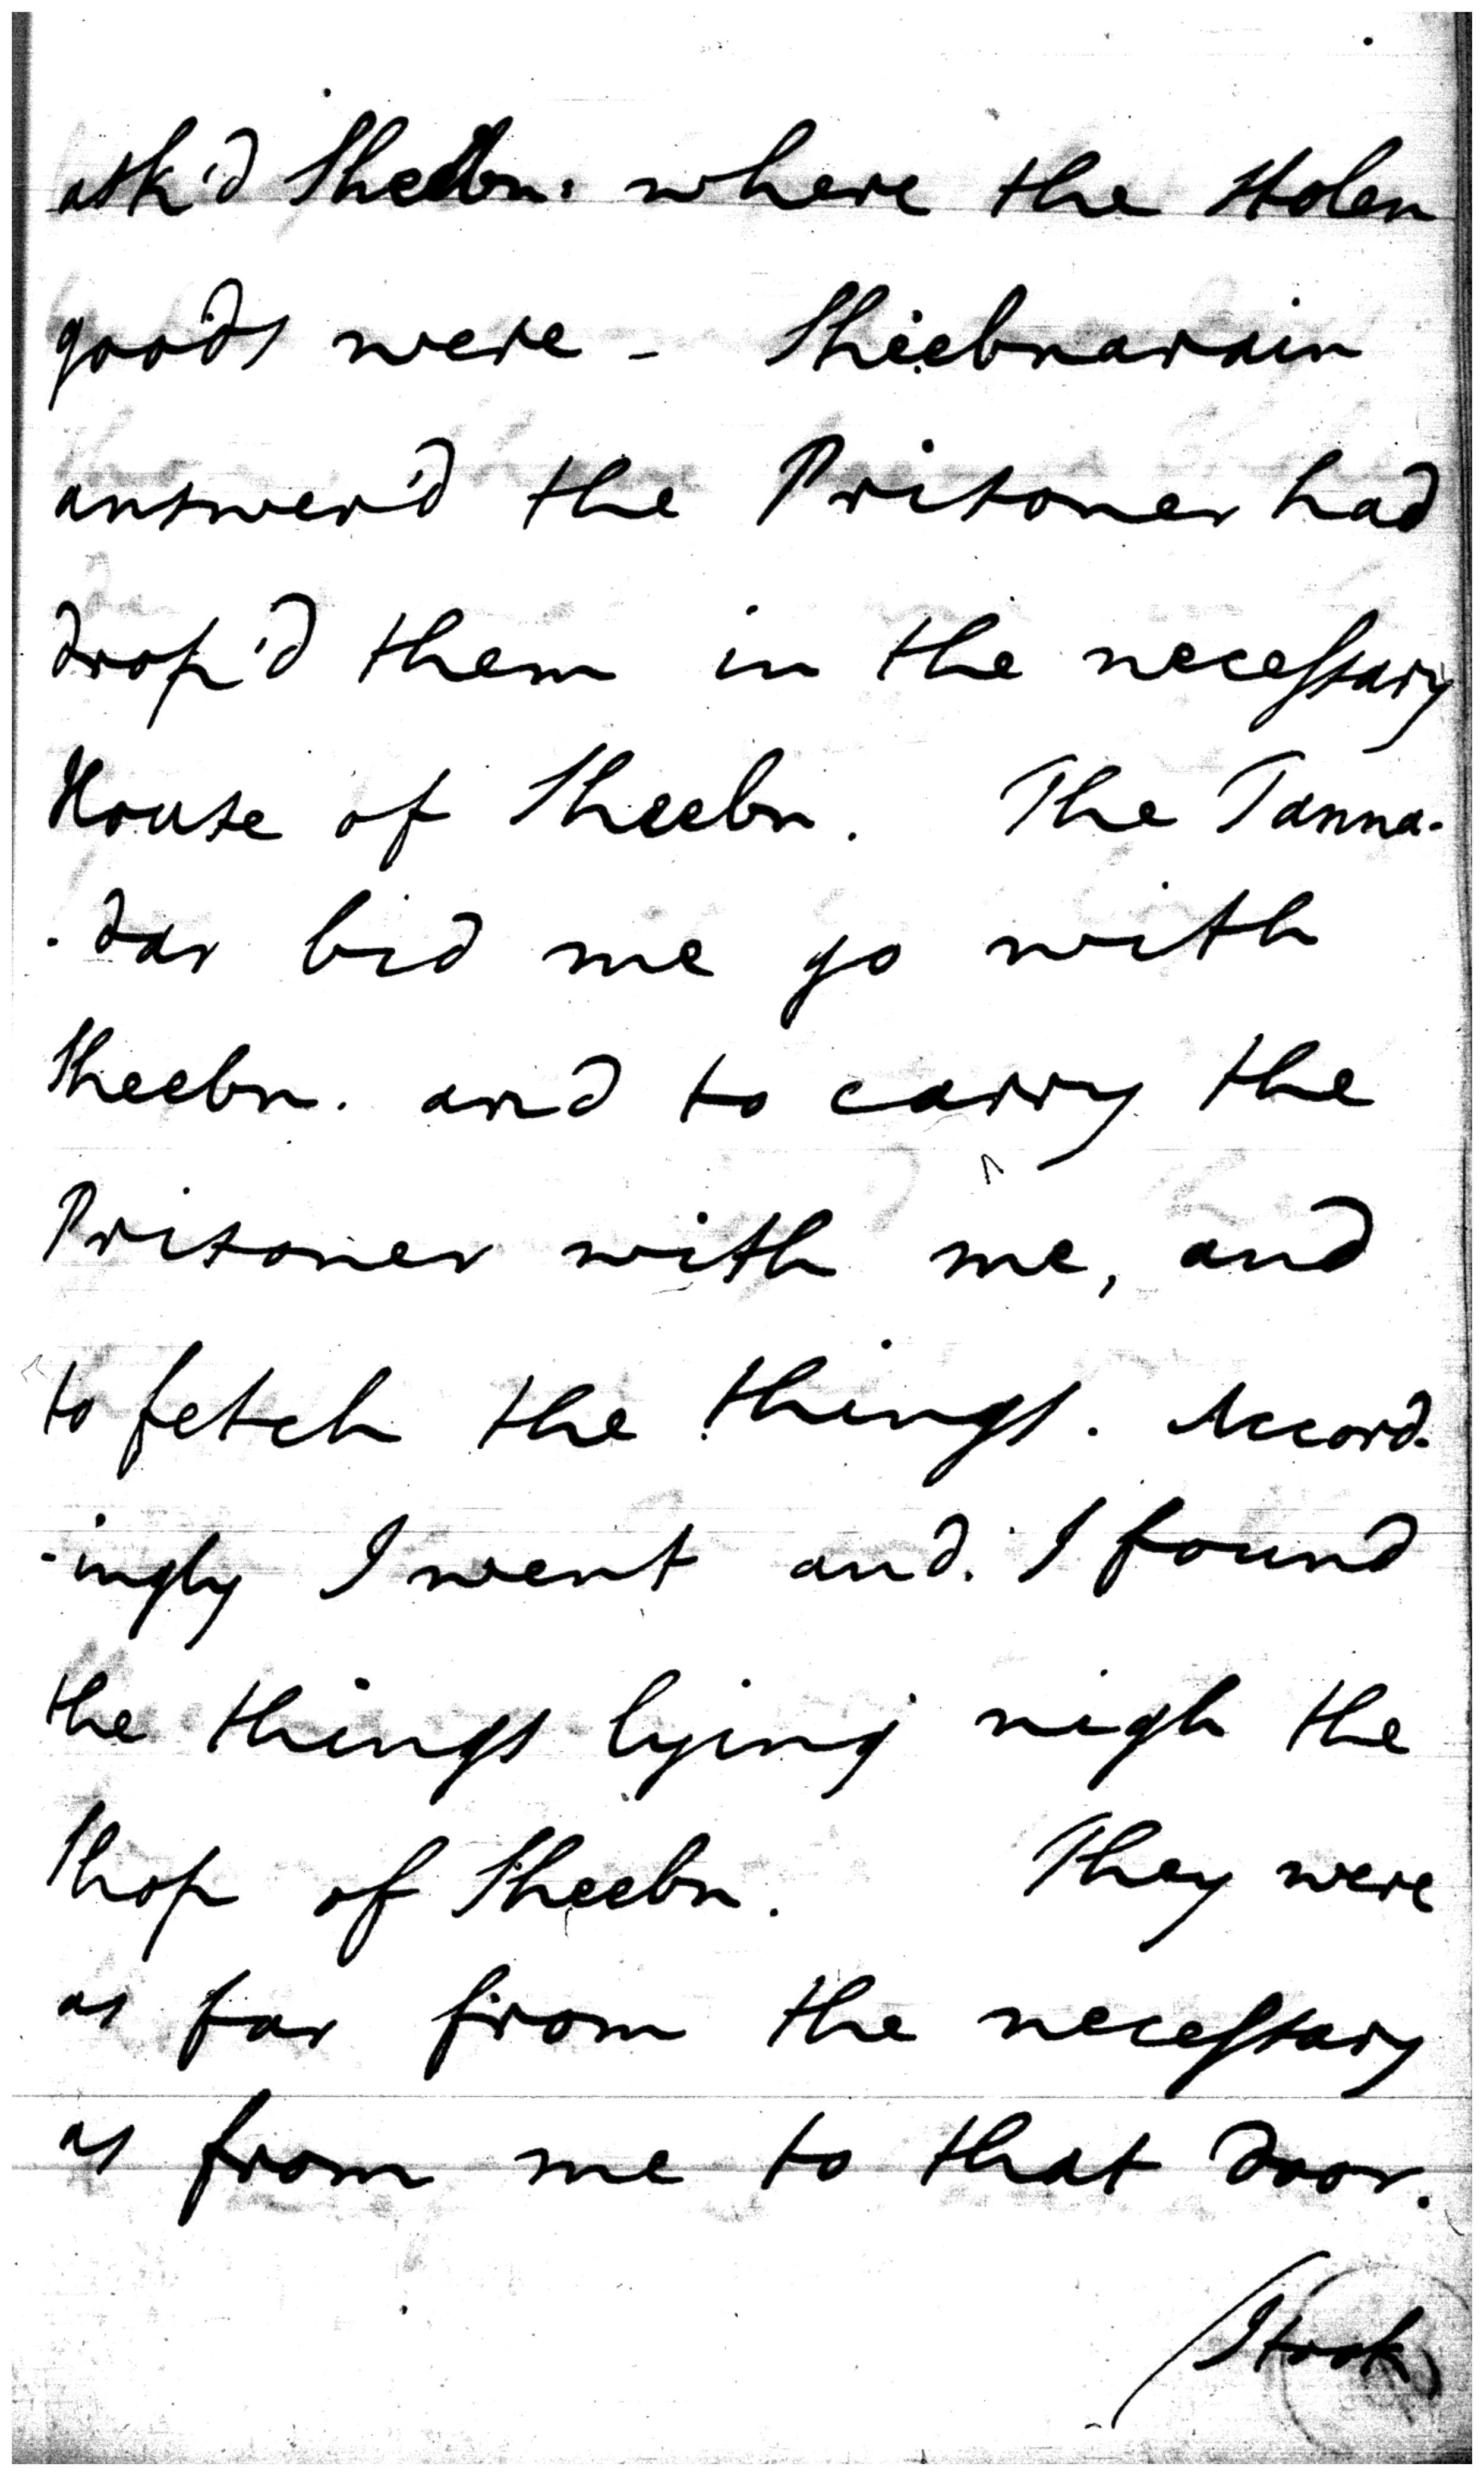 ask'd Sheebn. where the stolen
goods were - Sheebnarain
answer'd the Prisoner had
drop'd them in the necessary
House of Sheebn. The Tanna-
-dar bid me go with
Sheebn. and to carry the
Prisoner with me, and
to fetch the things. Accord-
-ingly I went and. I found
the things lying nigh the
Shop of Sheebn. They were
as far from the necessary
as from me to that door.
I took